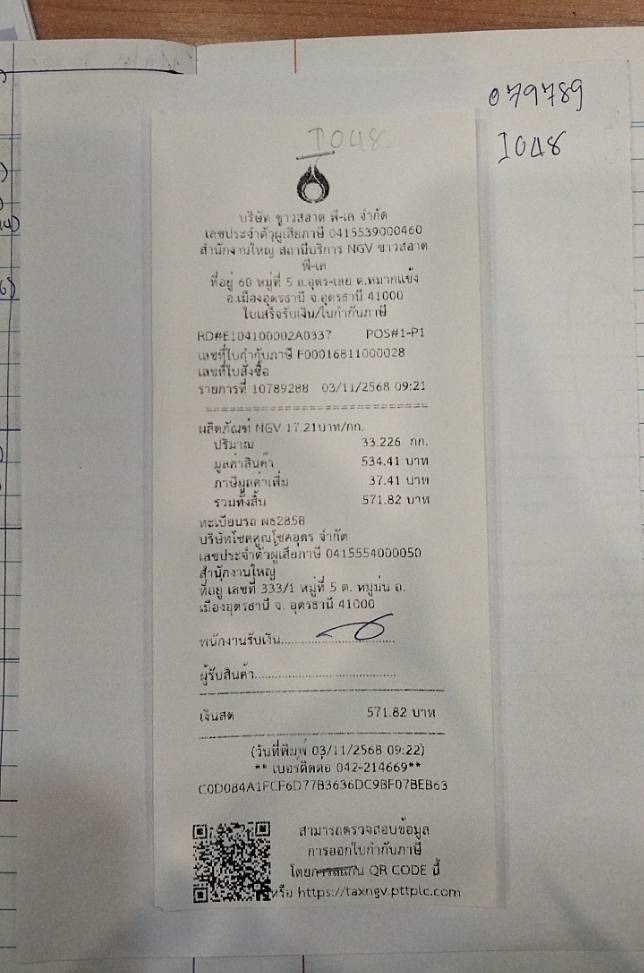 079789
I048
I048
บริษัท ขาวสลาด พี-เค จำกัด
เลขประจำตัวผู้เสียภาษี 0415539000460
สำนักงานใหญ่ สถานีบริการ NGV
พี-เค
ที่อยู่ 60 หมู่ที่ 5 ถ.อุดร-เลย ต.หมากแข้ง
อ.เมืองอุดรธานี จ.อุดรธานี 41000
ใบเสร็จรับเงิน/ใบกำกับภาษี
RD#E104100002A0337 POS#1-P1
เลขที่ใบกำกับภาษี F00016811000028
เลขที่ใบสั่งซื้อ
รายการที่ 10789288 03/11/2568 09:21
ผลิตภัณฑ์ NGV 17.21บาท/กก.
ปริมาณ 33.226 กก.
มูลค่าสินค้า 534.41 บาท
ภาษีมูลค่าเพิ่ม 37.41 บาท
รวมทั้งสิ้น 571.82 บาท
ทะเบียนรถ ผธ2858
บริษัทโชคคูณโชคอุดร จำกัด
เลขประจำตัวผู้เสียภาษี 0415554000050
สำนักงานใหญ่
ที่อยู่ เลขที่ 333/1 หมู่ที่ 5 ต. หมูม่น อ.
เมืองอุดรธานี จ. อุดรธานี 41000
พนักงานรับเงิน
ผู้รับสินค้า
เงินสด 571.82 บาท
(วันที่พิมพ์ 03/11/2568 09:22)
** เบอร์ติดต่อ 042-214669**
C0D084A1FCF6D77B3636DC9BF07BEB63
สามารถตรวจสอบข้อมูล
การออกใบกำกับภาษี
โดยการสแกน QR CODE นี้
หรือ https://taxngv.pttplc.com